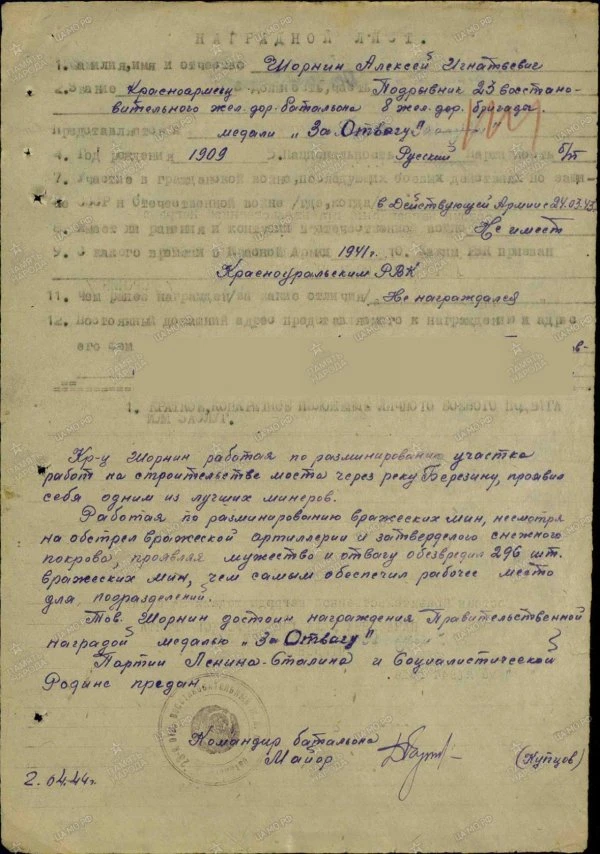 НАГРАДНОЙ ЛИСТ.
1. Фамилия, имя и отчество Шорнин Алексей Игнатьевич
2. Звание Красноармеец Подрывник 23 восстано-
вительного жел. дор. батальона 8 жел. дор. бригады.
Представляется медали „За Отвагу"
4. Год рождения 1909 5. Национальность Русский б/п
7. Участие в гражданской войне, последующих боевых действиях по защи-
те СССР и отечественной войне /где, когда/ в Действующей Армии с 24.03.43
8. Имеет ли ранения и контузии в отечественной войне Не имеет
9. С какого времени в Красной Армии 1941 г. 10. Каким РВК призван
Красноуральским РВК
11. Чем ранее награжден/за какие отличия/ Не награждался
12. Постоянный домашний адрес представляемого к награждению и адрес
его сем
в-
1. КРАТКОЕ, КОНКРЕТНОЕ ИЗЛОЖЕНИЕ ЛИЧНОГО БОЕВОГО ПОДВИГА
ИЛИ ЗАСЛУГ.
Кр-ц Шорнин работая по разминированию участка
работ на строительстве моста через реку Березину, проявил
себя одним из лучших минеров.
Работая по разминированию вражеских мин, несмотря
на обстрел вражеской артиллерии и затверделого снежного
покрова, проявляя мужество и отвагу обезвредил 296 шт.
вражеских мин, чем самым обеспечил рабочее место
для подразделений.
Тов. Шорнин достоин награждения Правительственной
наградой медалью „За Отвагу"
Партии Ленина-Сталина и Социалистической
Родине предан.
Командир батальона
Майор
(Купцов)
2.04.44 г.